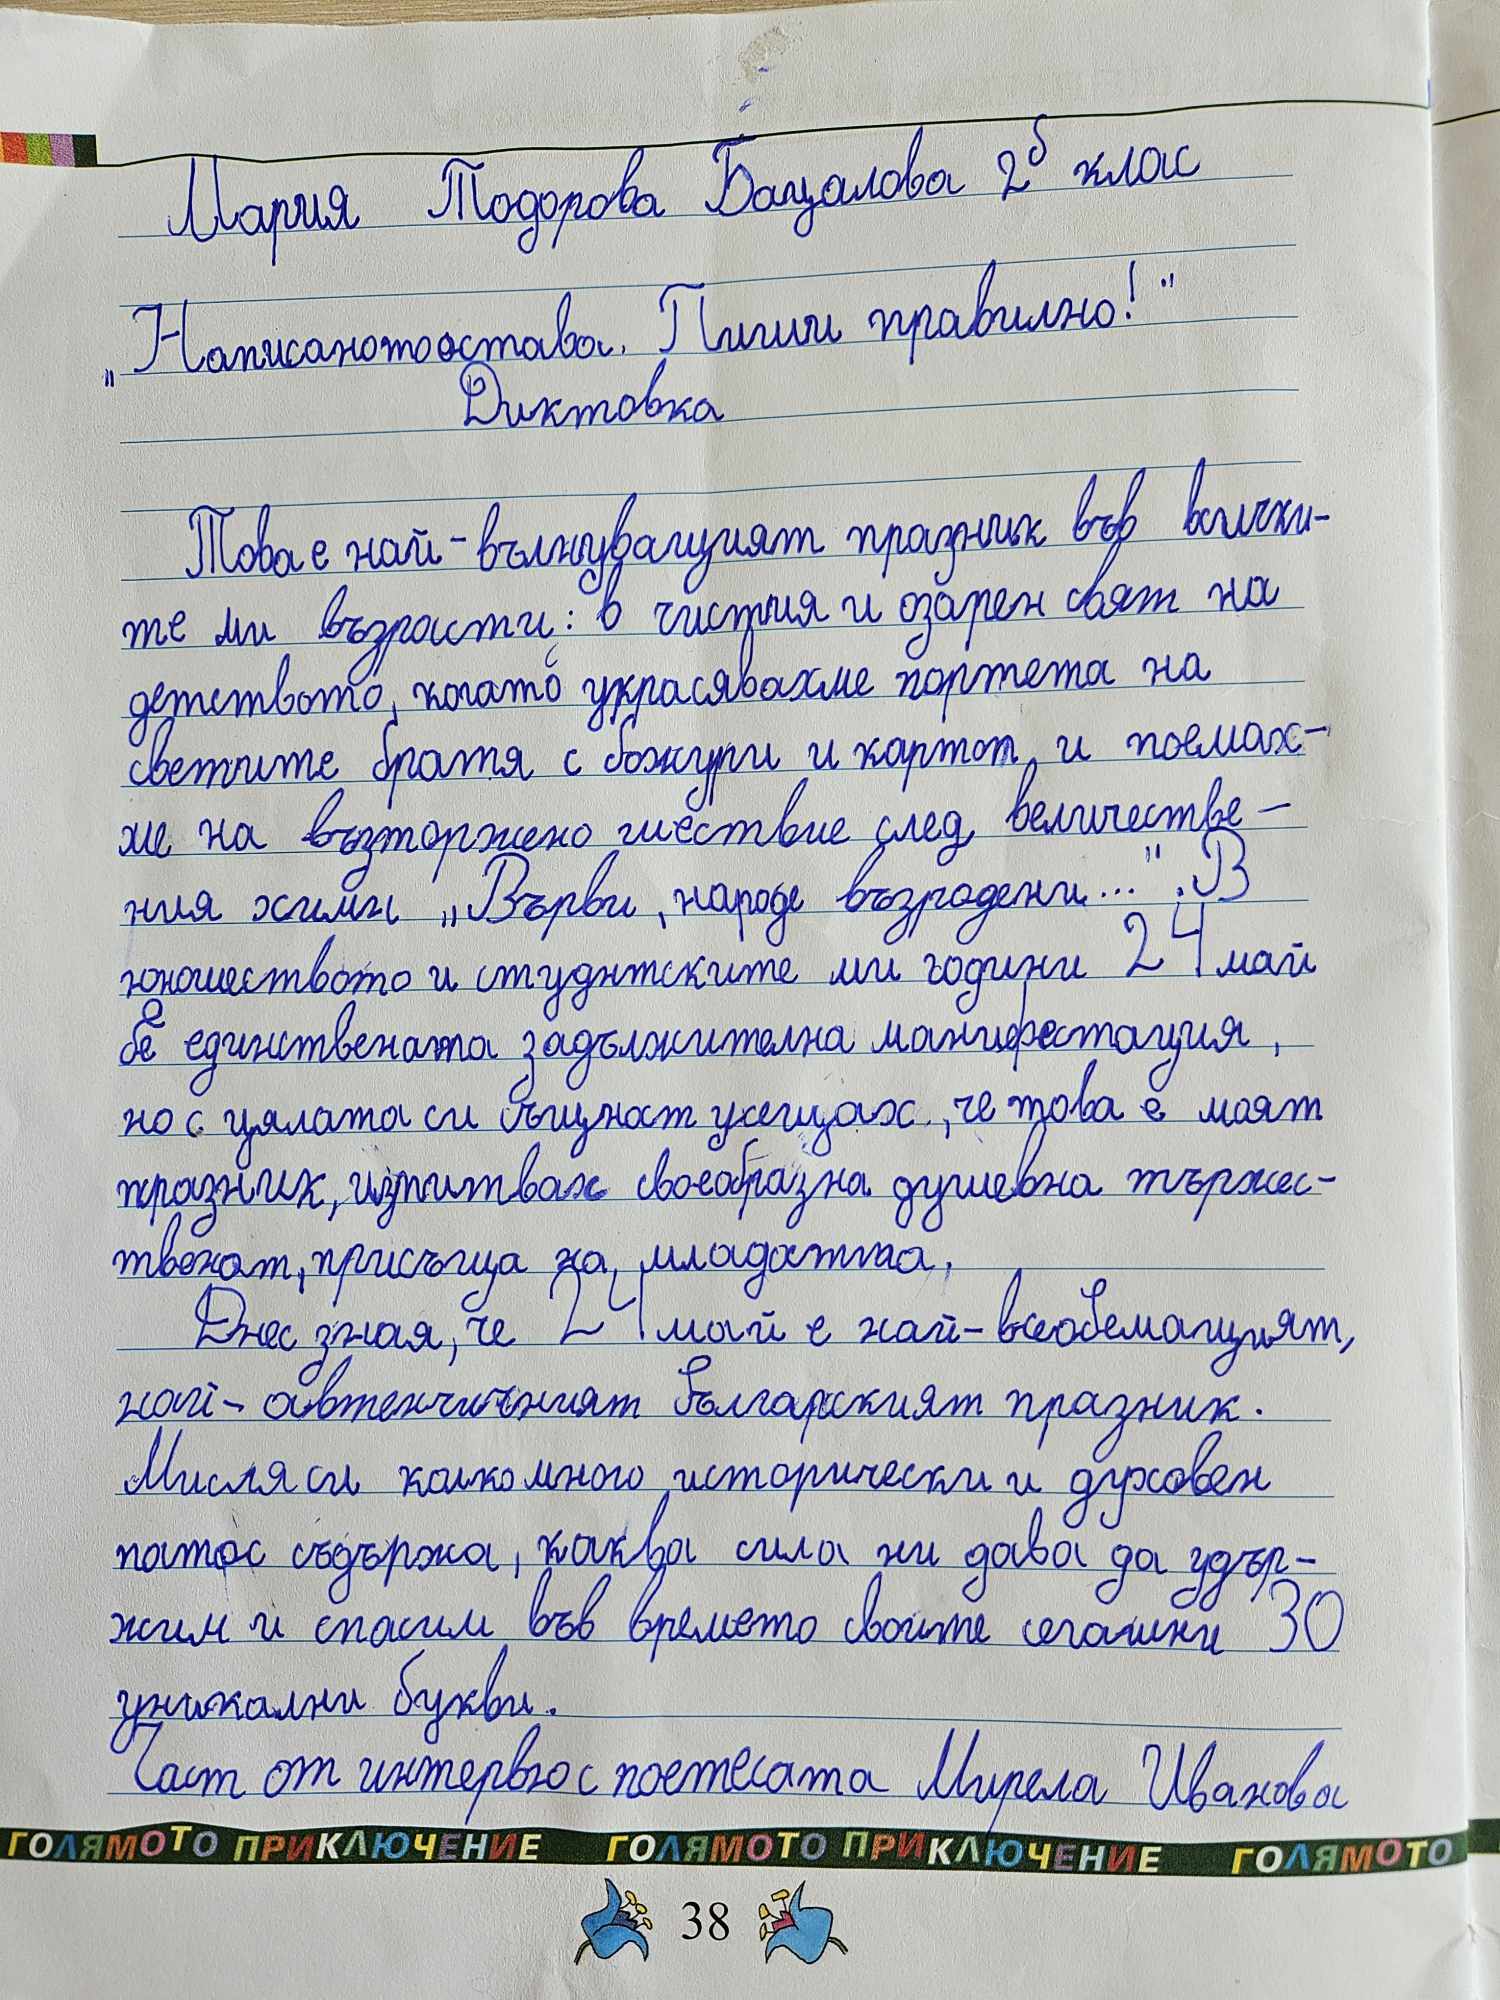 Мария Тодорова Бацалова 2б клас
„Написаното остава. Пиши правилно!"
Диктовка
Това е най-вълнуващият празник във всички-
те ми възрасти: в чистия и озарен свят на
детството, когато украсявахме портета на
светите братя с божури и картон и поемах-
ме на възторжено шествие след величестве-
ния химн „Върви, народе възродени...". В
юношеството и студнтските ми години 24 май
бе единствената задължителна манифестация,
но с цялата си същност усещах, че това е моят
празник, изпитвах своеобразна душевна тържес-
твенат, присъща на младостта.
Днес зная, че 24 май е най-всеобемащият,
най-автентичният българският празник.
Мисля си колко много исторически и духовен
патос съдържа, каква сила ни дава да удър-
жим и спасим във времето своите сегашни 30
уникални букви.
Част от интервю с поетесата Мирела Иванова
ГОЛЯМОТО ПРИКЛЮЧЕНИЕ ГОЛЯМОТО ПРИКЛЮЧЕНИЕ ГОЛЯМОТО
38